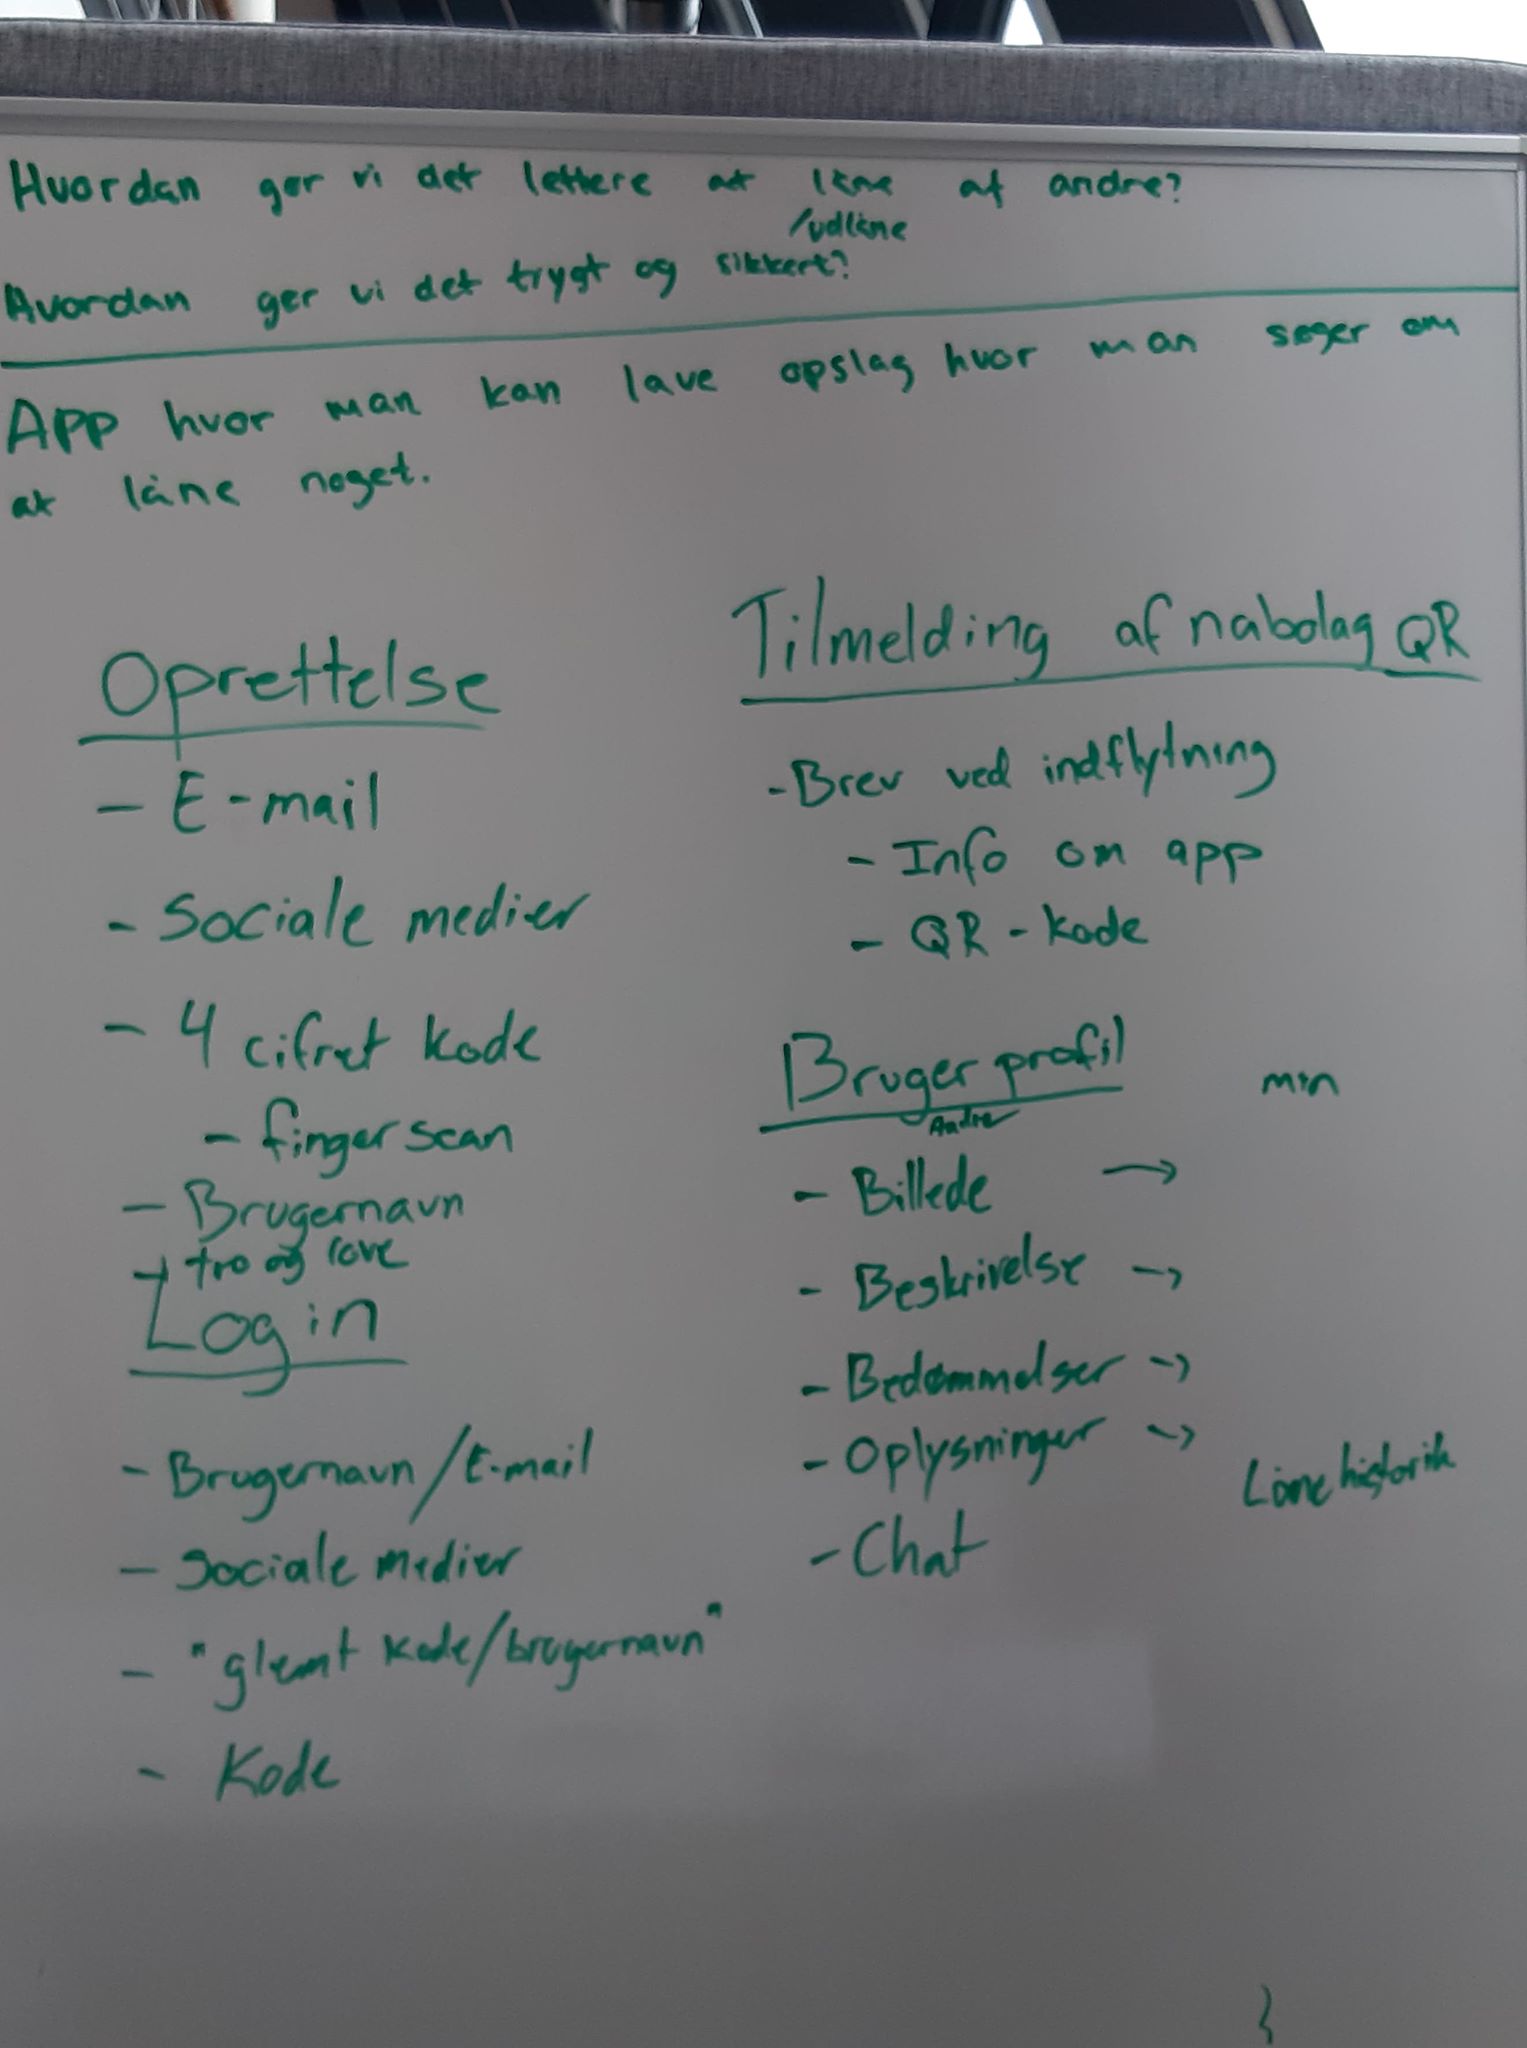 Hvordan gør vi det lettere at låne af andre?
/udlåne
Hvordan gør vi det trygt og sikkert?
App hvor man kan lave opslag hvor man søger om
at låne noget.
Oprettelse
- E-mail
- Sociale medier
- 4 cifret kode
- fingerscan
- Brugernavn
+ tro og love
Login
- Brugernavn/E-mail
- Sociale medier
- "glemt kode/brugernavn"
- Kode
Tilmelding af nabolag QR
- Brev ved indflytning
- Info om app
- QR-kode
Brugerprofil
Andre
min
- Billede →
- Beskrivelse →
- Bedømmelser →
- Oplysninger →
Lånehistorik
- Chat